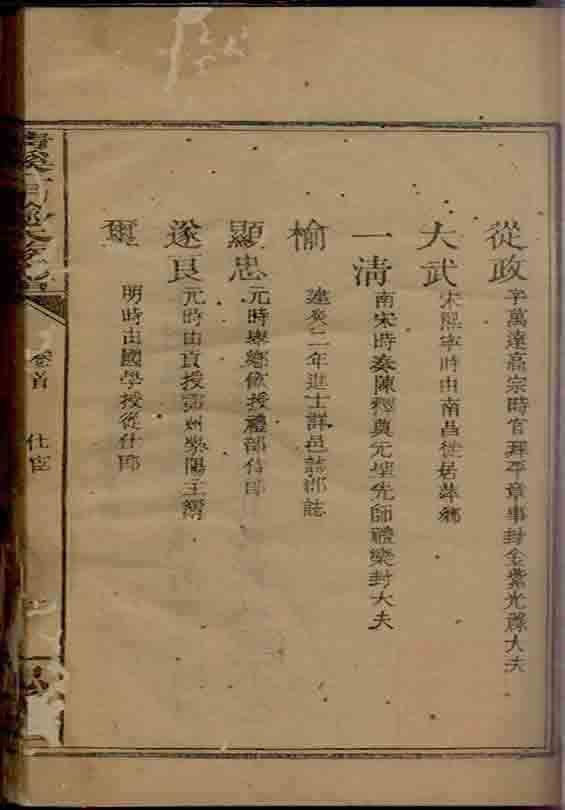 從政 字萬達高宗時官拜平章事封金紫光祿大夫
大武 宋熙寧時由南昌徙居萍鄉
一清 南宋時奏陳釋奠元聖先師禮樂封大夫
榆 建炎二年進士詳邑誌郡誌
顯忠 元時舉鄉飲授禮部侍郎
遂良 元時由貢授鄭州滎陽主簿
明時由國學授從仕郎
卷首
仕宦